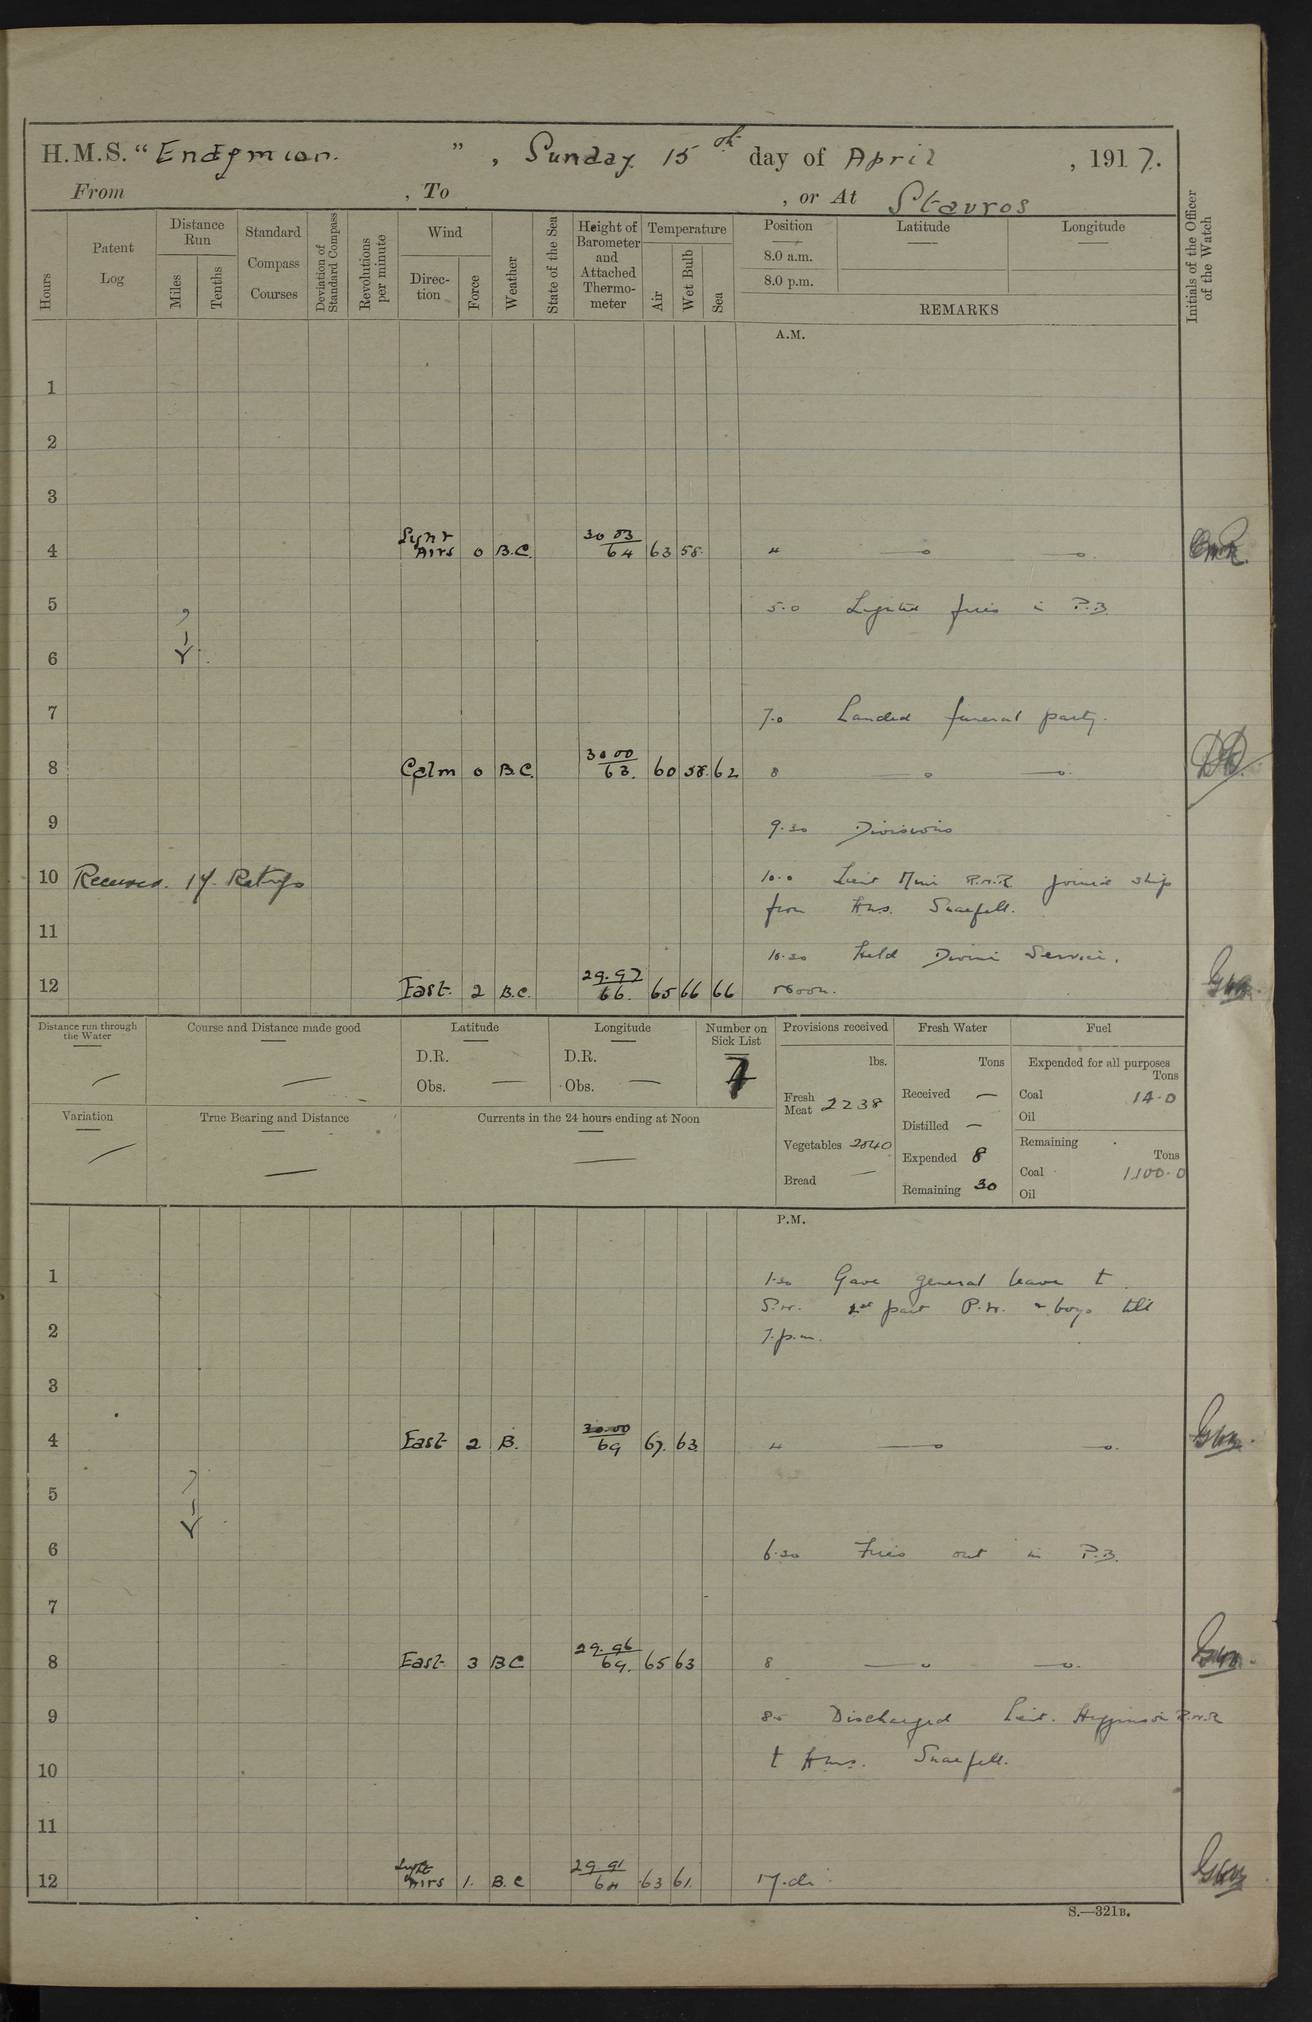 H.M.S. "Endymion.", Sunday 15th day of April, 1917.
From , To , or At Stavros
Hours
Patent Log
Distance Run
Miles
Tenths
Standard Compass Courses
Deviation of Standard Compass
Revolutions per minute
Wind
Direction
Force
Weather
State of the Sea
Height of Barometer and Attached Thermometer
Temperature
Air
Wet Bulb
Sea
Position
8.0 a.m.
8.0 p.m.
Latitude
Longitude
REMARKS
Initials of the Officer of the Watch
A.M.
1
2
3
4 Light Airs 0 B.C. 30 03 64 63 58 4
5 5.0 Lighted fires in P.B.
6
7 7.0 Landed funeral party.
8 Calm 0 B.C. 30 00 63. 60 58. 62 8
9 9.30 Divisions
10 Received 17 Ratings 10.0 Lieut R.N.R joined ship
from HMS. Snaefell.
11 10.30 Held Divine Service.
12 East. 2 B.C. 29.97 66. 65 66 66 Noon.
Distance run through the Water
Course and Distance made good
Latitude
D.R.
Obs. —
Longitude
D.R.
Obs. —
Number on Sick List
7
Variation
True Bearing and Distance
Currents in the 24 hours ending at Noon
Provisions received
lbs.
Fresh Meat 2238
Vegetables 2840
Bread —
Fresh Water
Tons
Received —
Distilled —
Expended 8
Remaining 30
Fuel
Expended for all purposes
Tons
Coal 14.0
Oil
Remaining
Tons
Coal 1100.0
Oil
P.M.
1 1.30 Gave general leave to
S.W. 2nd part P.W. & boys till
2 7.p.m.
3
4 East 2 B. 30.00 69 67. 63 4
5
6 6.30 Fires out in P.B.
7
8 East 3 BC 29.96 69. 65 63 8
9 Discharged Lieut. Higginson R.N.R
10 to HMS. Snaefell.
11
12 Light Airs 1. B.C 29 91 64 63 61. M.dt.
S.—321B.